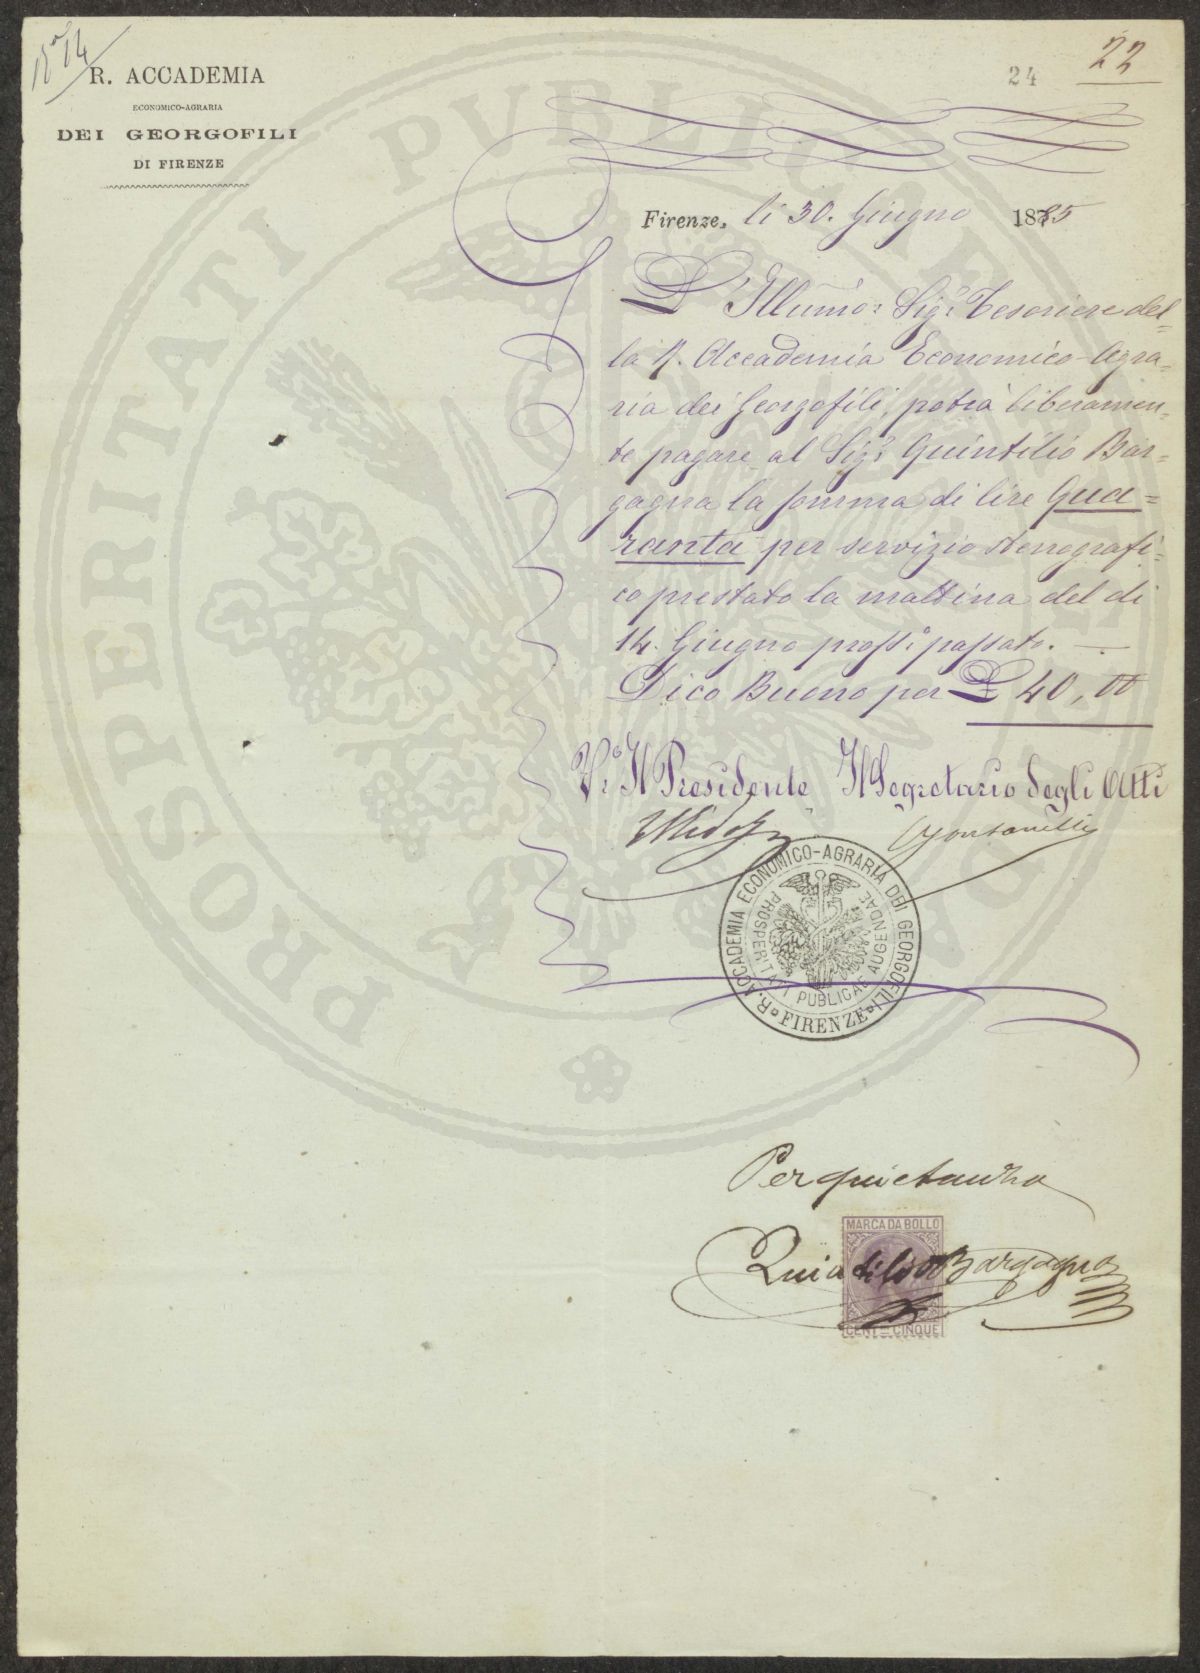 R. ACCADEMIA
ECONOMICO-AGRARIA
DEI GEORGOFILI
DI FIRENZE
24
22
Firenze, li 30. Giugno 1885
L'Illumo: Sigr Tesoriere del=
la R. Accademia Economico-Agra=
ria dei Georgofili, potrà liberamen=
te pagare al Sigr Quintilio Bar=
gagna la somma di lire Qua=
ranta per servizio stenografi=
co prestato la mattina del dì
14. Giugno pross: passato. —
Dico Buono per L 40,00
Vo: Il Presidente Il Segretario degli Atti
R. ACCADEMIA ECONOMICO-AGRARIA DEI GEORGOFILI
PROSPERITATI PUBLICAE AUGENDAE
FIRENZE
Per quietanza
MARCA DA BOLLO
Quintilio Bargagna
CENT= CINQUE
PROSPERITATI PUBLICAE